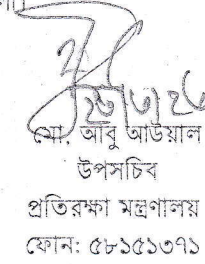 মো. আবু আউয়াল
উপসচিব
প্রতিরক্ষা মন্ত্রণালয়
ফোন: ৫৮১৫১৩৭১